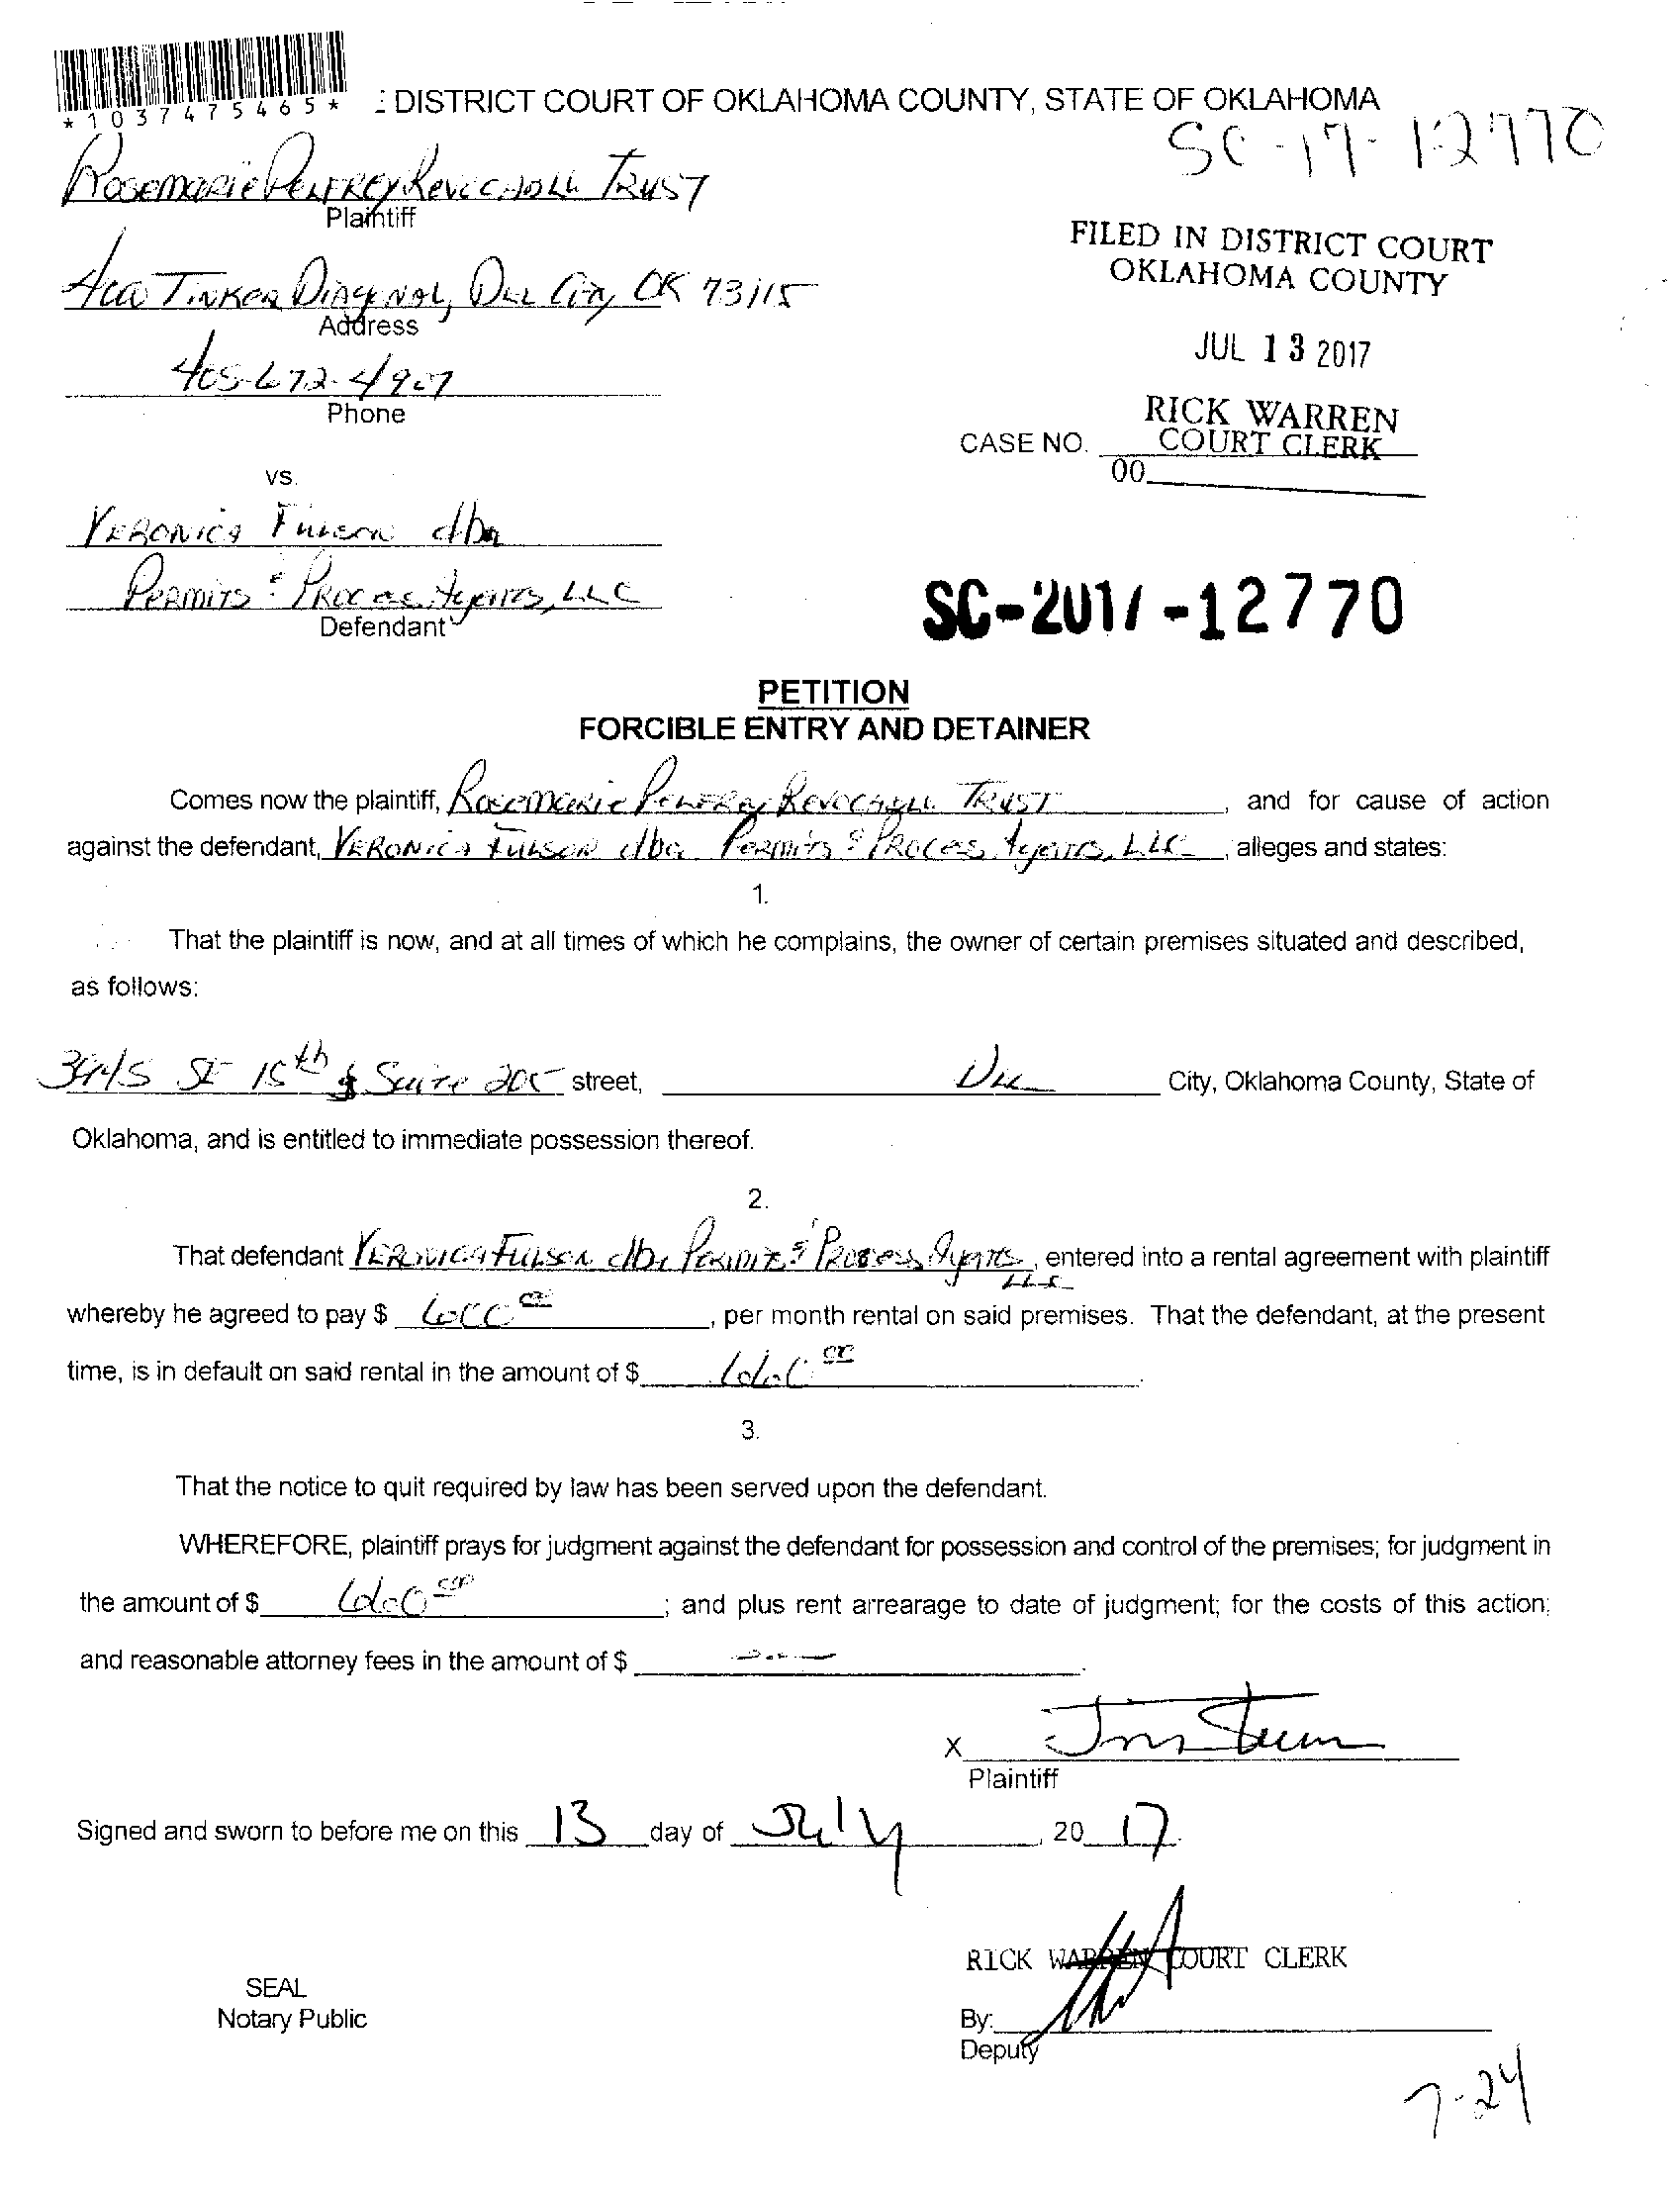 *1037475465*
DISTRICT COURT OF OKLAHOMA COUNTY, STATE OF OKLAHOMA
SC-17-12770
Rosemarie Penfrey Revocable Trust
Plaintiff
FILED IN DISTRICT COURT
OKLAHOMA COUNTY
Tinker Diagonal, Del City, OK 73115
Address
JUL 13 2017
405-672-4907
Phone
RICK WARREN
CASE NO. COURT CLERK
00
vs.
Veronica Fulson dba
Permits & Process Agents, LLC
Defendant
SC-2017-12770
PETITION
FORCIBLE ENTRY AND DETAINER
Comes now the plaintiff, Rosemarie Penfrey Revocable Trust, and for cause of action
against the defendant, Veronica Fulson dba Permits & Process Agents, LLC, alleges and states:
1.
That the plaintiff is now, and at all times of which he complains, the owner of certain premises situated and described,
as follows:
3445 SE 15th Suite street, Del City, Oklahoma County, State of
Oklahoma, and is entitled to immediate possession thereof.
2.
That defendant Veronica Fulson dba Permits & Process Agents, entered into a rental agreement with plaintiff
LLC
whereby he agreed to pay $ 600 00, per month rental on said premises. That the defendant, at the present
time, is in default on said rental in the amount of $
3.
That the notice to quit required by law has been served upon the defendant.
WHEREFORE, plaintiff prays for judgment against the defendant for possession and control of the premises; for judgment in
the amount of $ ; and plus rent arrearage to date of judgment; for the costs of this action;
and reasonable attorney fees in the amount of $
X
Plaintiff
Signed and sworn to before me on this 13 day of July, 20 17.
RICK WARREN COURT CLERK
SEAL
Notary Public
By:
Deputy
7-24